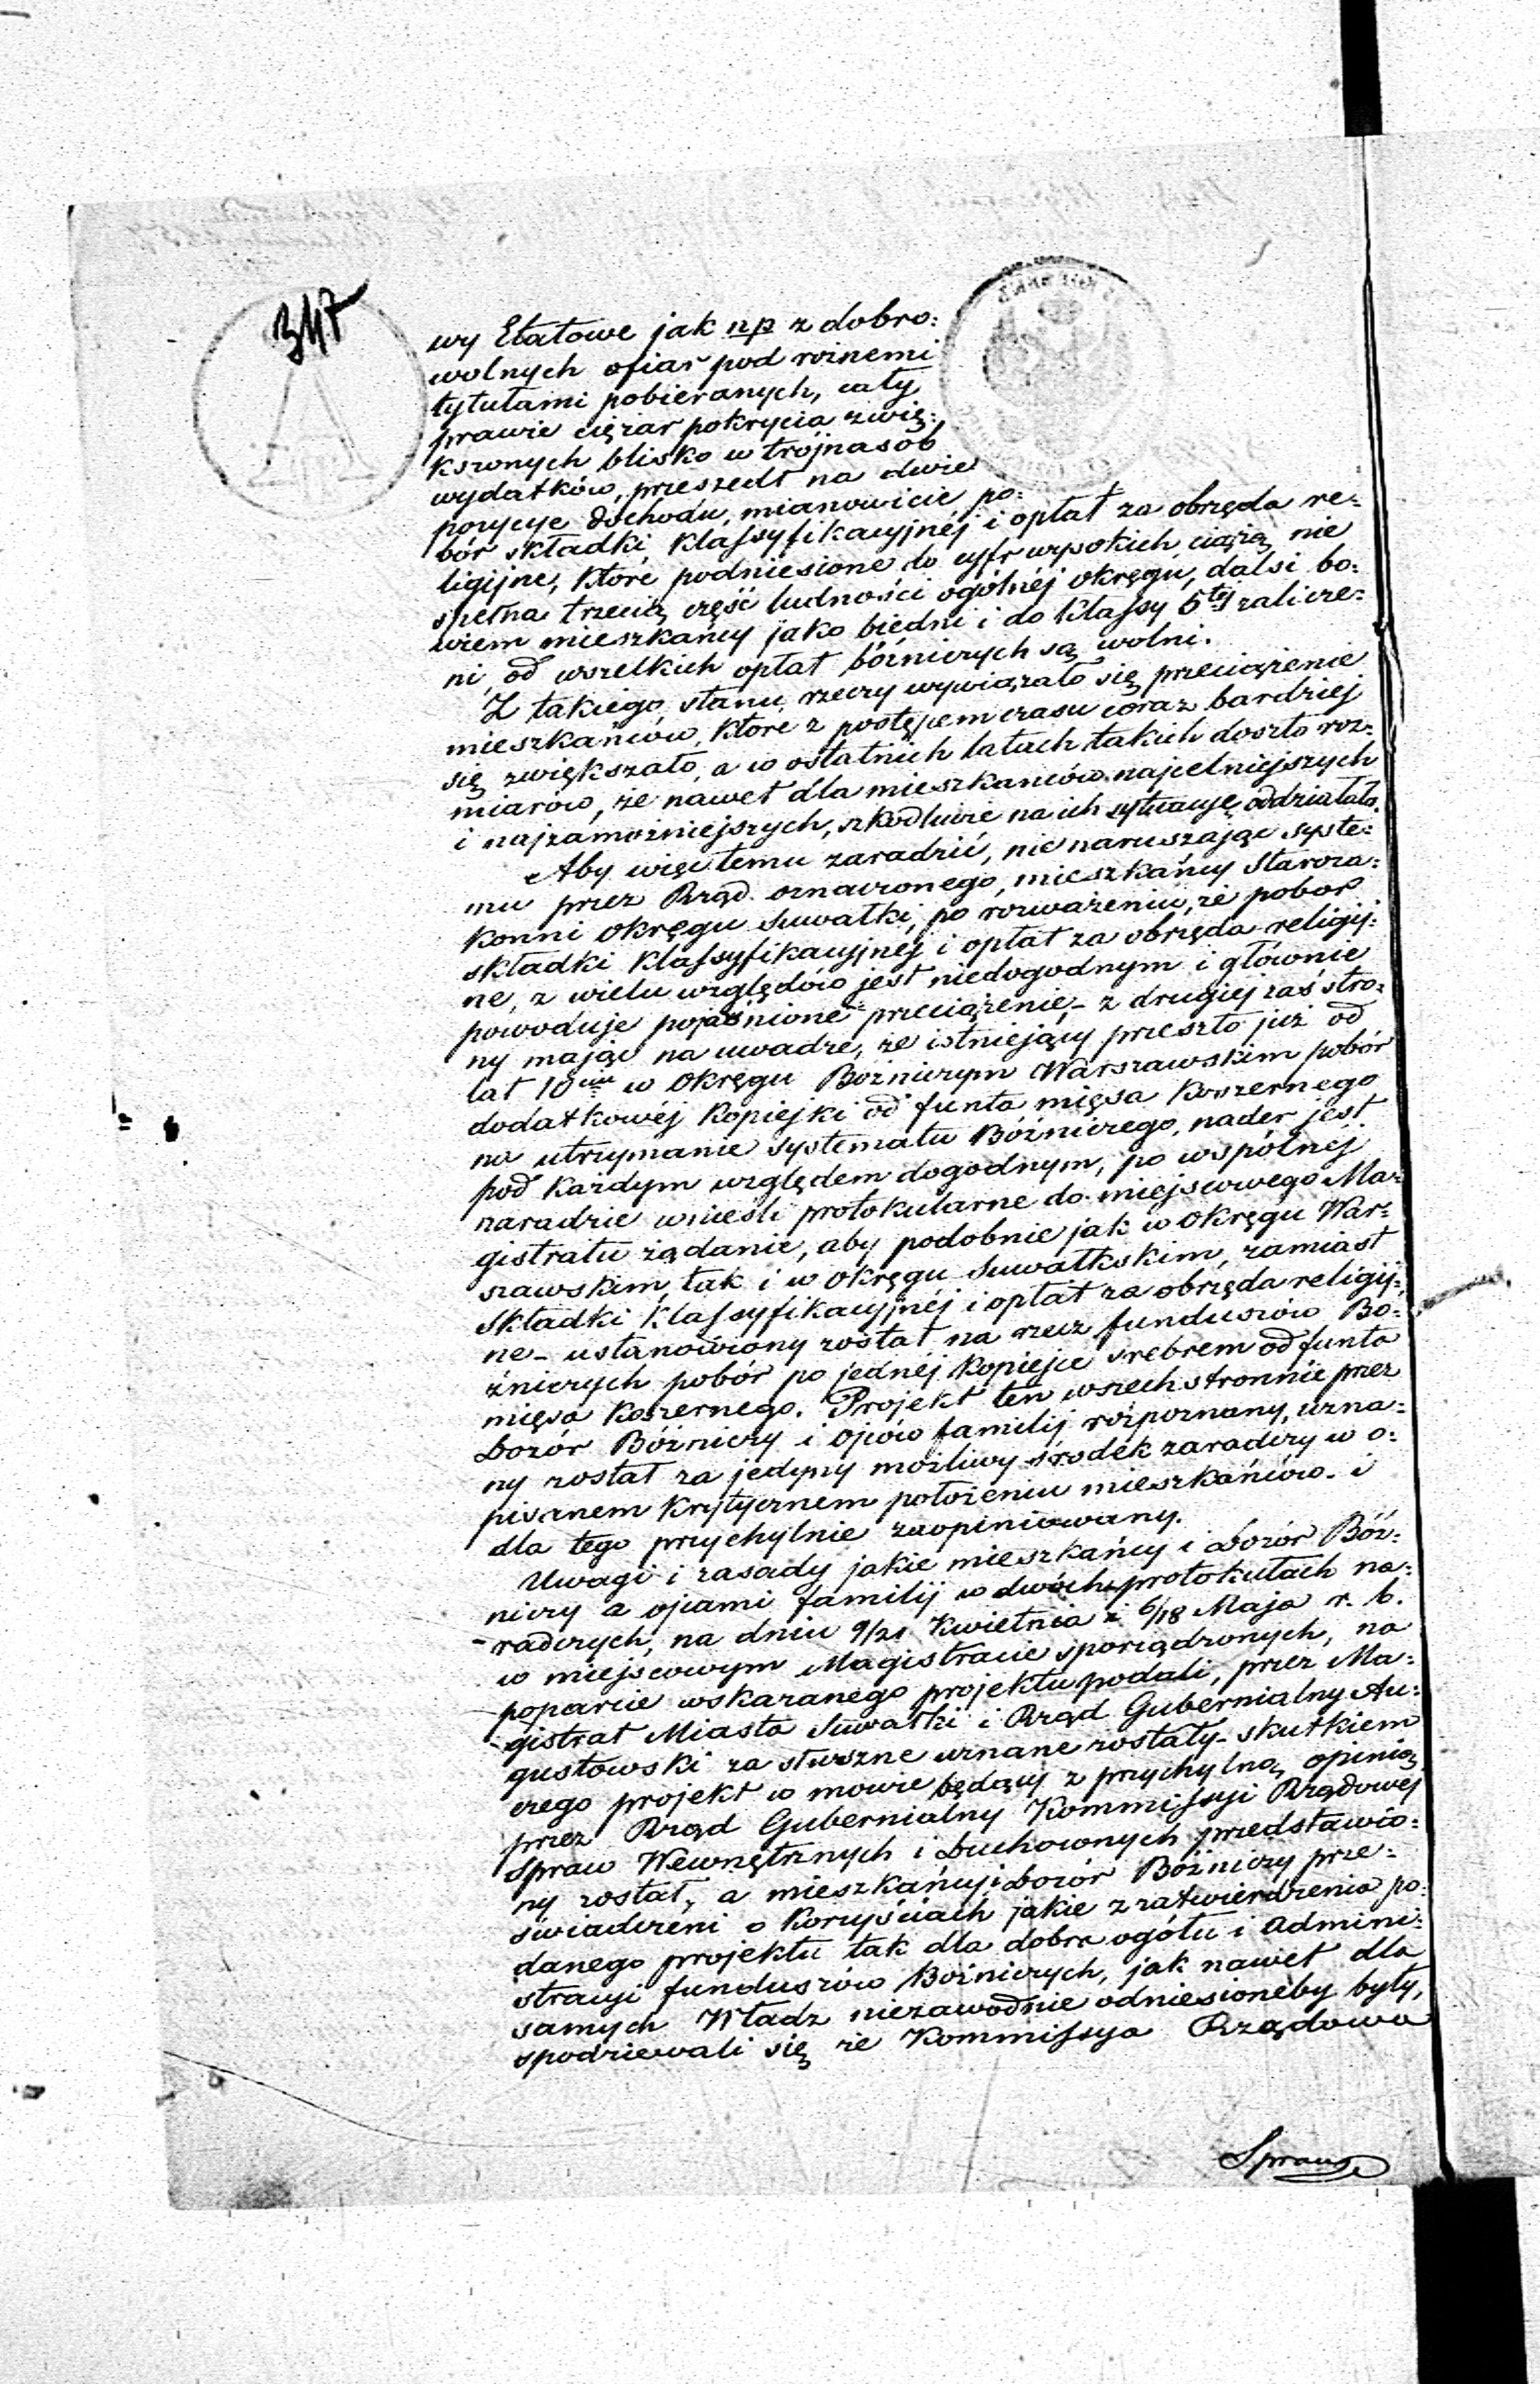 347
wy Etatowe jak np z dobro:
wolnych ofiar pod roznemi
tytułami pobieranych, cały
prawie ciężar pokrycia zwię:
kszonych blisko w trójnasób
wydatków, przeszedł na dwie
pozycye dochodu, mianowicie po:
bór składki klassyfikacyjnéj i opłat za obrzęda re:
ligijne, które podniesione do cyfr wysokich ciążą nie
spełna trzecią część ludności ogólnéj okręgu, dalsi bo:
wiem mieszkańcy jako biedni i do klassy 5téj zalicze:
ni, od wszelkich opłat bóżniczych są wolni.
Z takiego stanu rzeczy wywiązało się przeciążenie
mieszkańców, które z postępem czasu coraz bardziej
się zwiększało, a w ostatnich latach takich doszło roz:
miarów, że nawet dla mieszkańców najcelniejszych
i najzamożniejszych, szkodliwie na ich sytuację oddziałało.
Aby więc temu zaradzić, nie naruszając syste:
mu przez Rząd oznaczonego, mieszkańcy Staroza:
konni okręgu Suwałki, po rozważeniu, że pobór
składki klassyfikacyjnéj i opłat za obrzęda religij:
ne, z wielu względów jest niedogodnym i głównie
powoduje pojaśnione przeciążenie,- z drugiej zaś stro:
ny mając na uwadze, że istniejący przeszło już od
lat 10ciu w Okręgu Bożniczym Warszawskim pobór
dodatkowéj kopiejki od funta mięsa koszernego
na utrzymanie systematu Bóżniczego, nader jest
pod każdym względem dogodnym, po wspólnéj
naradzie wnieśli protokularne do miejscowego Ma:
gistratu żądanie, aby podobnie jak w Okręgu War:
szawskim, tak i w Okręgu Suwałkskim, zamiast
Składki Klassyfikacyjnéj i opłat za obrzęda religij:
ne - ustanowiony został na rzecz funduszów Bo:
żniczych pobór po jednéj kopiejce srebrem od funta
mięsa koszernego. Projekt ten wszechstronnie przez
Dozór Bóżniczy i ojców familij rozpoznany, uzna:
ny został za jedyny możliwy środek zaradczy w o:
pisanem krytycznem położeniu mieszkańców - i
dla tego przychylnie zaopiniowany.
Uwagi i zasady jakie mieszkańcy i Dozór Bóż:
niczy a ojcami familij w dwóch protokułach na:
radczych, na dniu 9/21 Kwietnia i 6/18 Maja r. b.
w miejscowym Magistracie sporządzonych, na
poparcie wskazanego projektu podali, przez Ma:
gistrat Miasta Suwałki i Rząd Gubernialny Au:
gustowski za słuszne uznane zostały - skutkiem
czego projekt w mowie będący z przychylną opinią
przez Rząd Gubernialny Kommissyi Rządowéj
Spraw Wewnętrznych i Duchownych przedstawio:
ny został, a mieszkańcy i Dozór Bóżniczy prze:
świadczeni o korzyściach jakie z zatwierdzenia po:
danego projektu tak dla dobra ogółu i Admini:
stracyi funduszów Bożniczych, jak nawet dla
samych Władz niezawodnie odniesioneby były,
spodziewali się że Kommissya Rządowa
Spraw